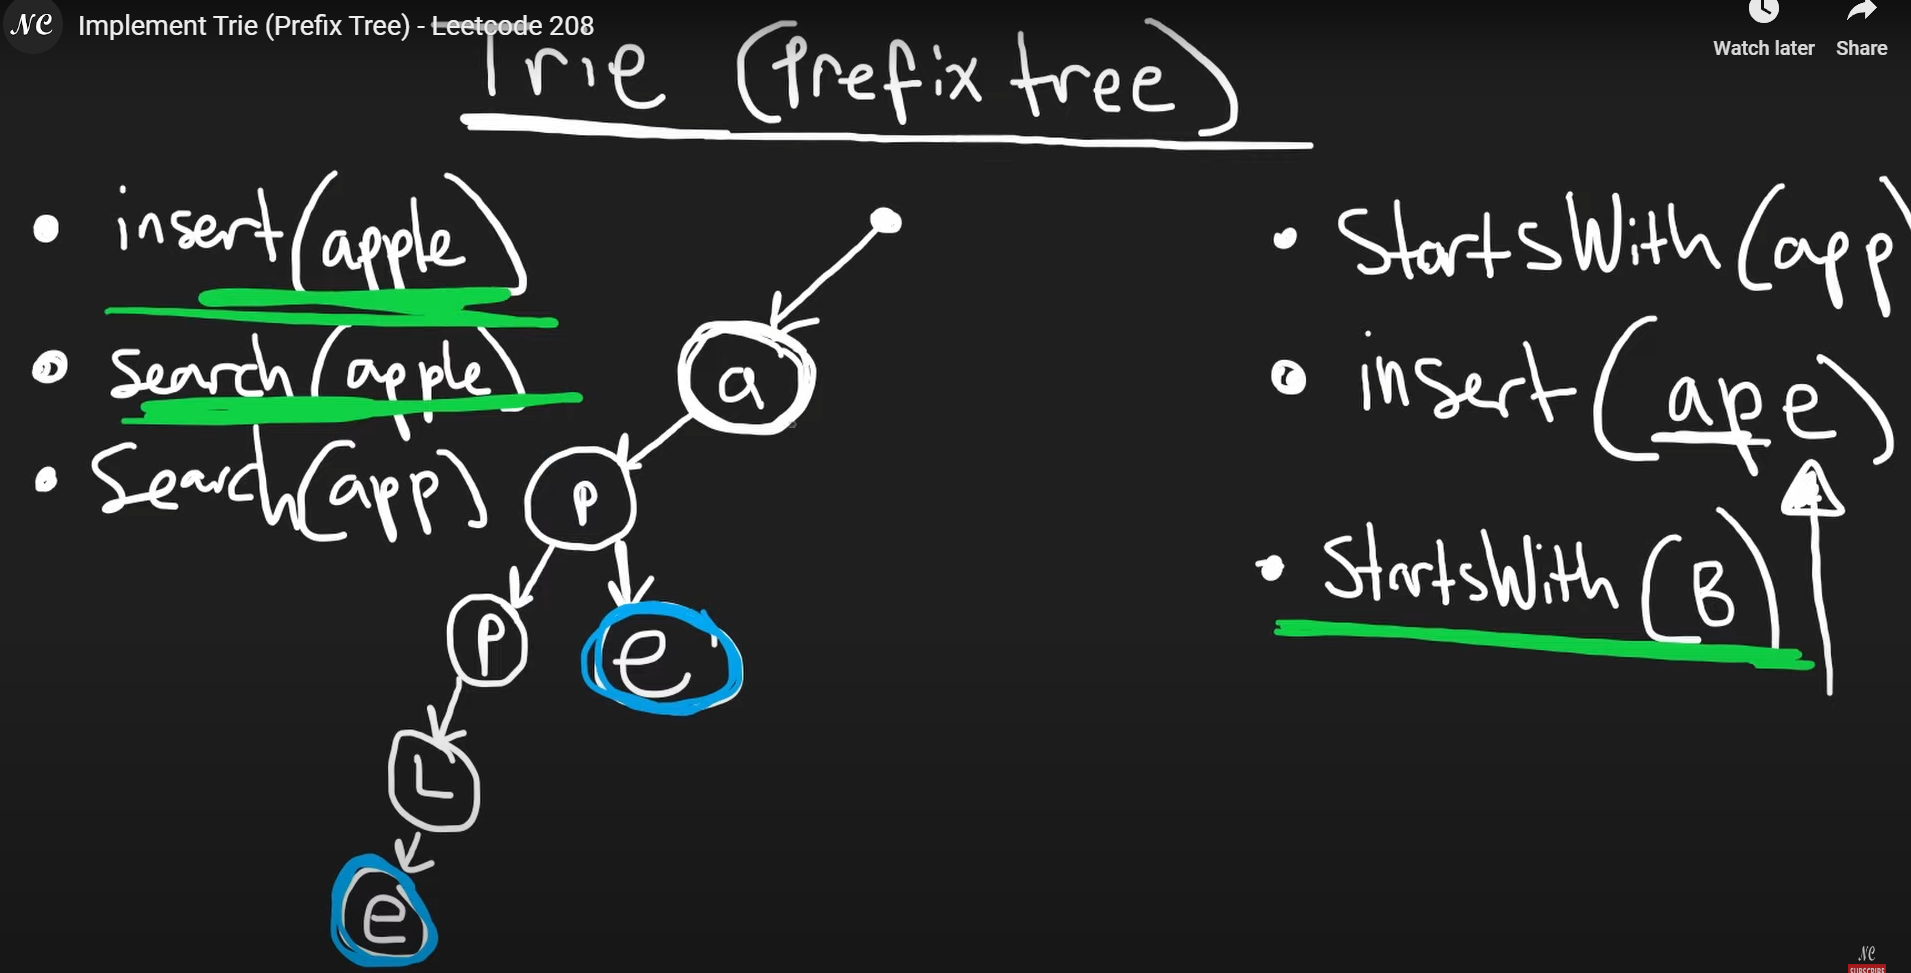 NC Implement Trie (Prefix Tree) - Leetcode 208
Watch later Share
Trie (Prefix tree)
• insert(apple)
• Search(apple)
• Search(app)
• StartsWith(app)
• insert(ape)
• StartsWith(B)
a
P
P
e
L
e
NC
SUBSCRIBE